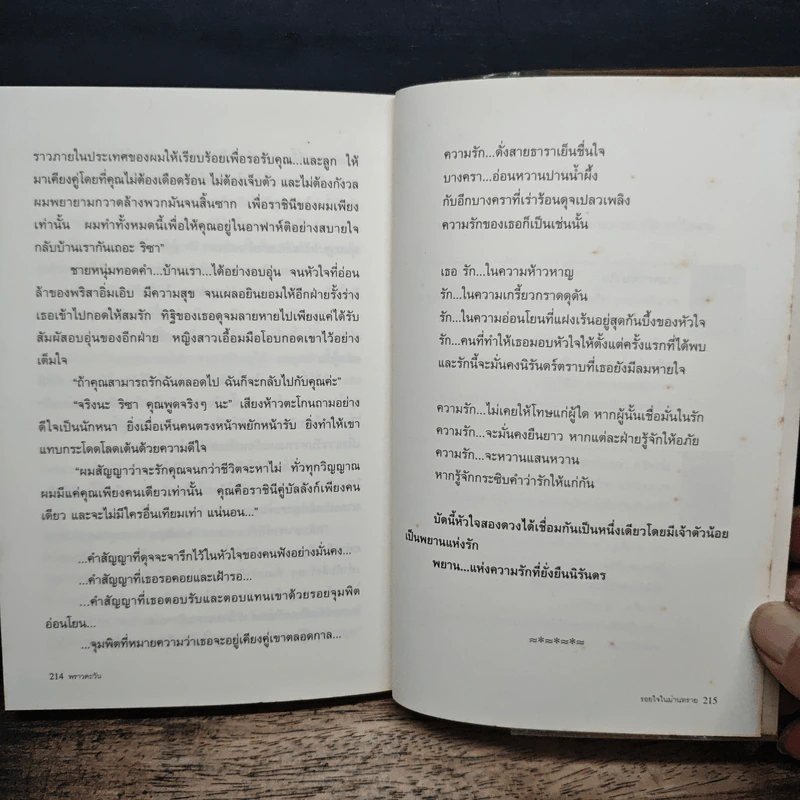 ราวภายในประเทศของผมให้เรียบร้อยเพื่อรอรับคุณ...และลูก ให้
มาเคียงคู่โดยที่คุณไม่ต้องเดือดร้อน ไม่ต้องเจ็บตัว และไม่ต้องกังวล
ผมพยายามกวาดล้างพวกมันจนสิ้นซาก เพื่อราชินีของผมเพียง
เท่านั้น ผมทำทั้งหมดนี้เพื่อให้คุณอยู่ในอาฟาห์ดีอย่างสบายใจ
กลับบ้านเรากันเถอะ ริซา”
ชายหนุ่มทอดคำ...บ้านเรา...ได้อย่างอบอุ่น จนหัวใจที่อ่อน
ล้าของพริสาอิ่มเอิบ มีความสุข จนเผลอยินยอมให้อีกฝ่ายรั้งร่าง
เธอเข้าไปกอดให้สมรัก ทิฐิของเธอดุจมลายหายไปเพียงแค่ได้รับ
สัมผัสอบอุ่นของอีกฝ่าย หญิงสาวเอื้อมมือโอบกอดเขาไว้อย่าง
เต็มใจ
“ถ้าคุณสามารถรักฉันตลอดไป ฉันก็จะกลับไปกับคุณค่ะ”
“จริงนะ ริซา คุณพูดจริงๆ นะ” เสียงห้าวตะโกนถามอย่าง
ดีใจเป็นนักหนา ยิ่งเมื่อเห็นคนตรงหน้าพยักหน้ารับ ยิ่งทำให้เขา
แทบกระโดดโลดเต้นด้วยความดีใจ
“ผมสัญญาว่าจะรักคุณจนกว่าชีวิตจะหาไม่ ทั่วทุกวิญญาณ
ผมมีแค่คุณเพียงคนเดียวเท่านั้น คุณคือราชินีคู่บัลลังก์เพียงคน
เดียว และจะไม่มีใครอื่นเทียมเท่า แน่นอน...”
...คำสัญญาที่ดุจจะจารึกไว้ในหัวใจของคนฟังอย่างมั่นคง...
...คำสัญญาที่เธอรอคอยและเฝ้ารอ...
...คำสัญญาที่เธอตอบรับและตอบแทนเขาด้วยรอยจุมพิต
อ่อนโยน...
...จุมพิตที่หมายความว่าเธอจะอยู่เคียงคู่เขาตลอดกาล...
214 พราวตะวัน
ความรัก...ดั่งสายธาราเย็นชื่นใจ
บางครา...อ่อนหวานปานน้ำผึ้ง
กับอีกบางคราที่เร่าร้อนดุจเปลวเพลิง
ความรักของเธอก็เป็นเช่นนั้น
เธอ รัก...ในความห้าวหาญ
รัก...ในความเกรี้ยวกราดดุดัน
รัก...ในความอ่อนโยนที่แฝงเร้นอยู่สุดก้นบึ้งของหัวใจ
รัก...คนที่ทำให้เธอมอบหัวใจให้ตั้งแต่ครั้งแรกที่ได้พบ
และรักนี้จะมั่นคงนิรันดร์ตราบที่เธอยังมีลมหายใจ
ความรัก...ไม่เคยให้โทษแก่ผู้ใด หากผู้นั้นเชื่อมั่นในรัก
ความรัก...จะมั่นคงยืนยาว หากแต่ละฝ่ายรู้จักให้อภัย
ความรัก...จะหวานแสนหวาน
หากรู้จักกระซิบคำว่ารักให้แก่กัน
บัดนี้หัวใจสองดวงได้เชื่อมกันเป็นหนึ่งเดียวโดยมีเจ้าตัวน้อย
เป็นพยานแห่งรัก
พยาน...แห่งความรักที่ยั่งยืนนิรันดร
≈*≈*≈*≈
รอยใจในม่านทราย 215